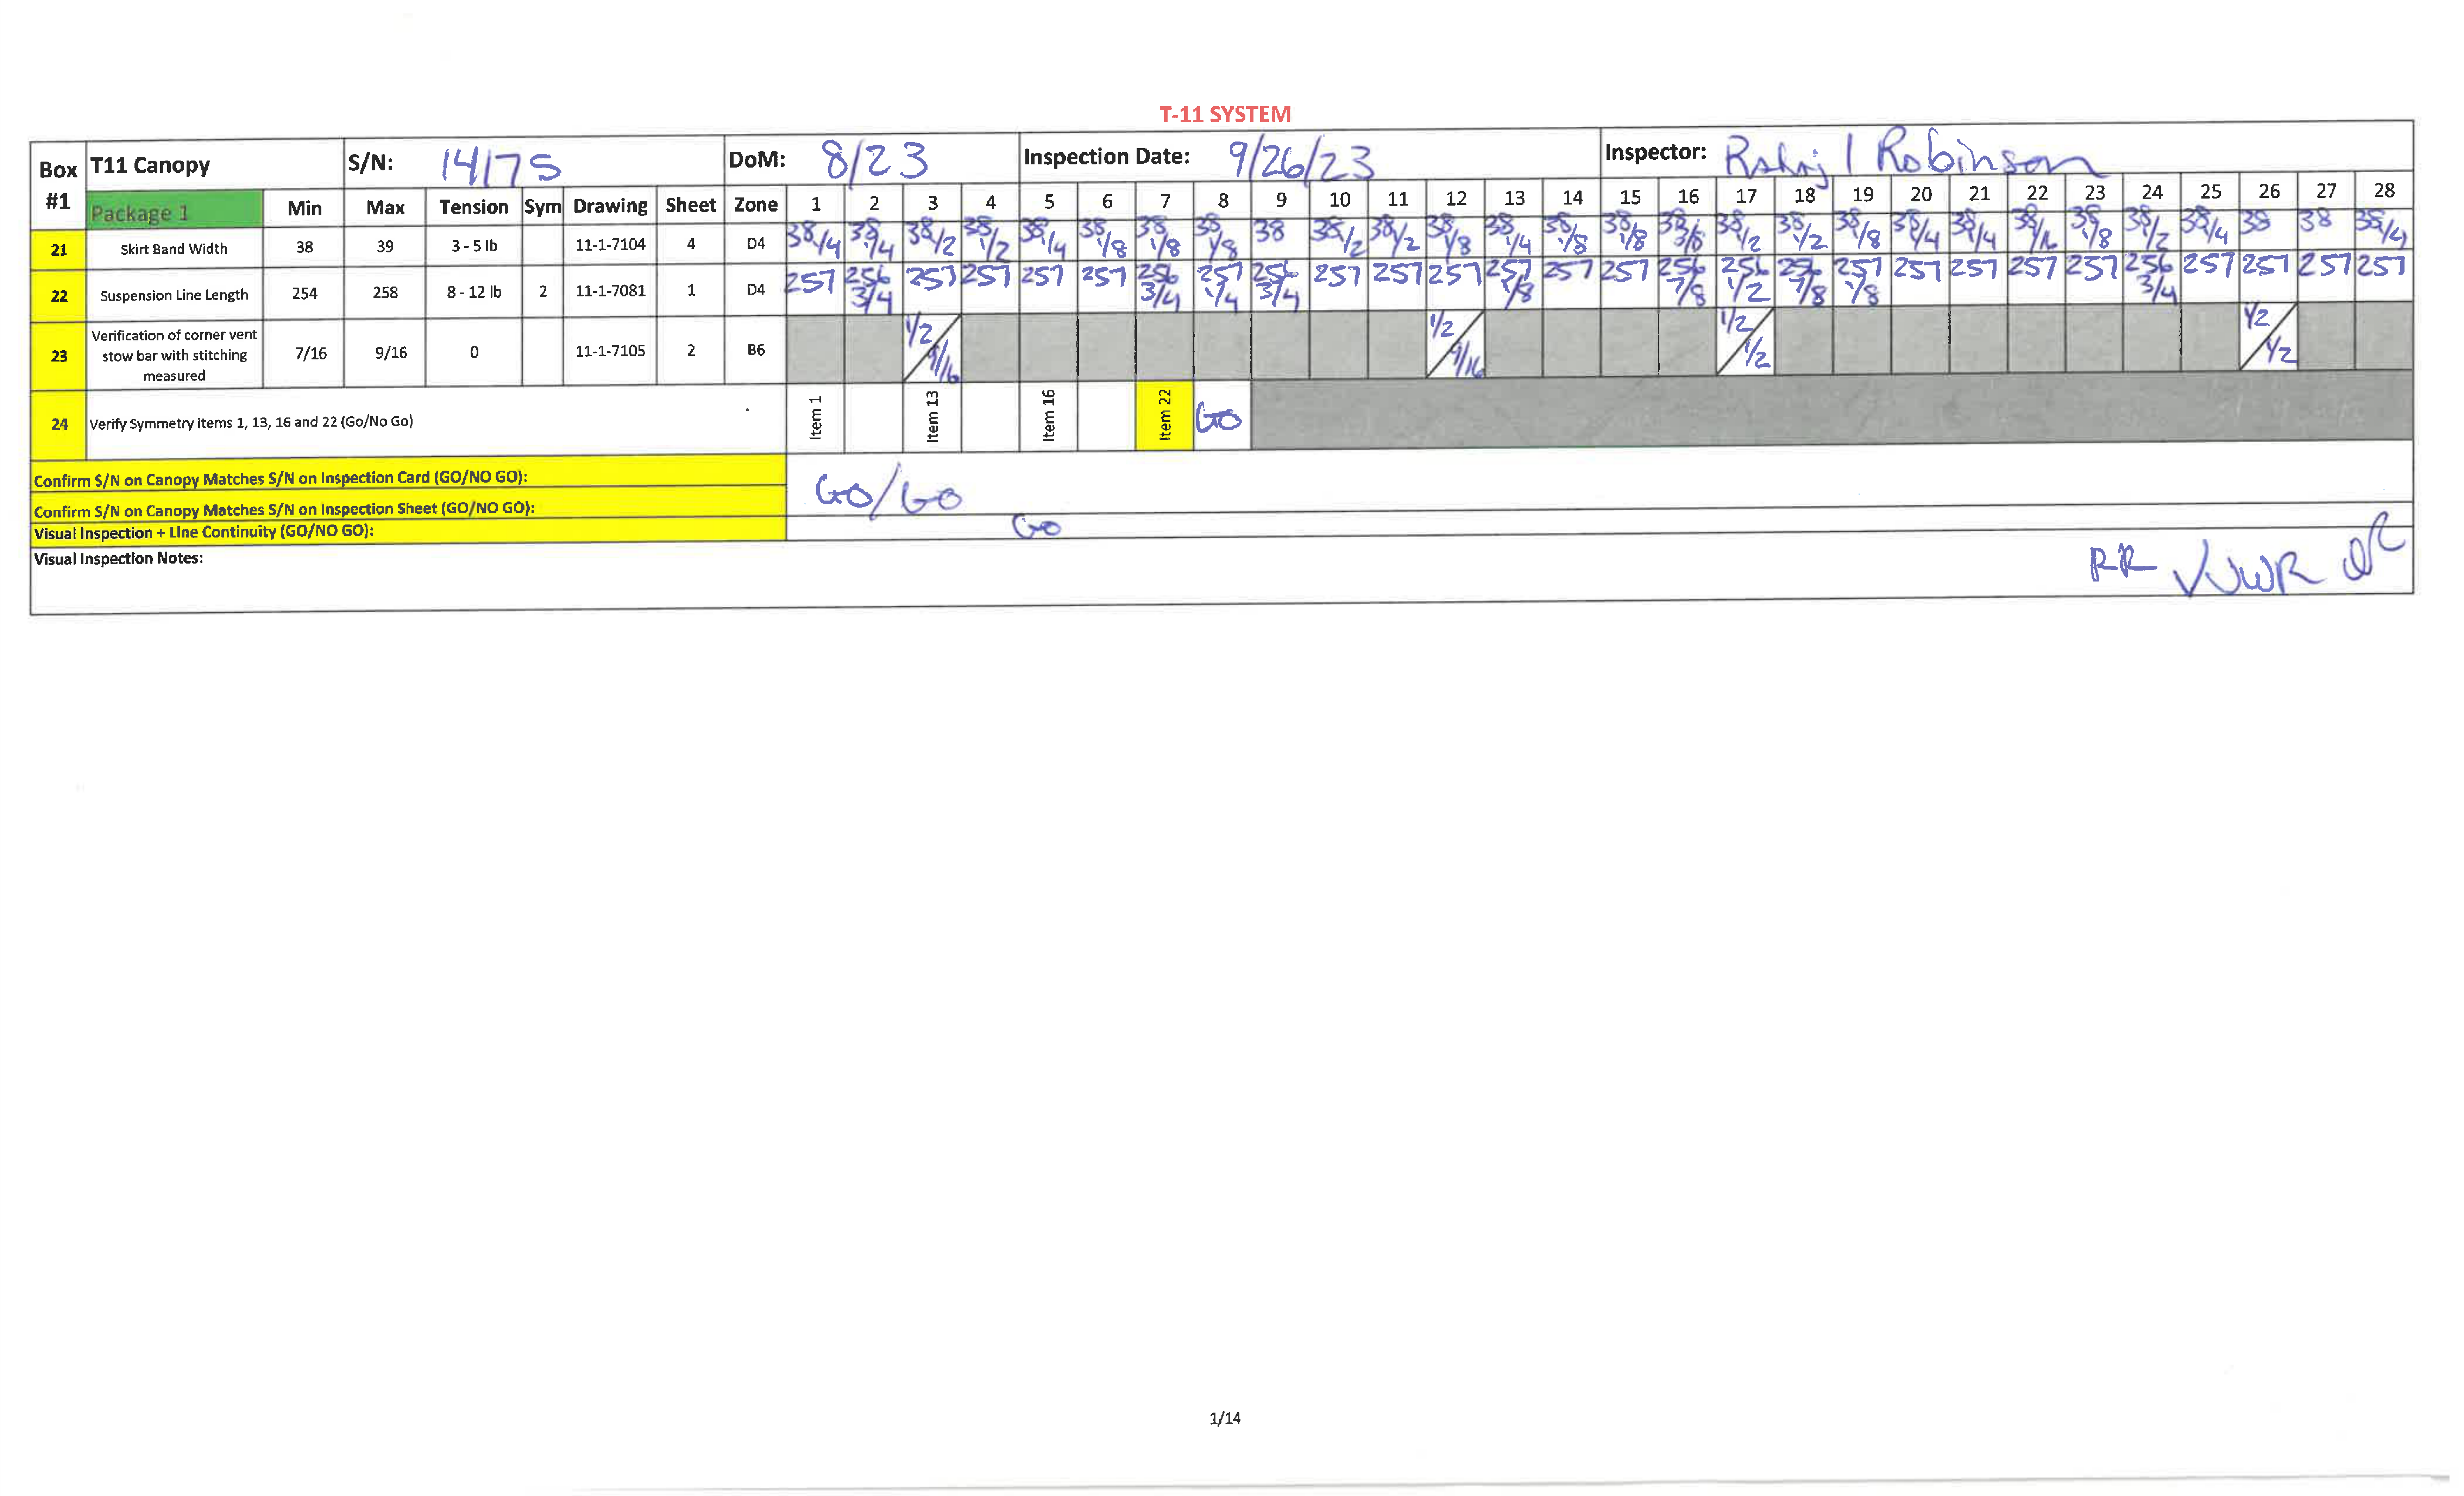 T-11 SYSTEM
Box #1 T11 Canopy S/N: 14175 DoM: 8/23 Inspection Date: 9/26/23 Inspector: Robinson
Package 1 Min Max Tension Sym Drawing Sheet Zone 1 2 3 4 5 6 7 8 9 10 11 12 13 14 15 16 17 18 19 20 21 22 23 24 25 26 27 28
21 Skirt Band Width 38 39 3 - 5 lb 11-1-7104 4 D4 38 1/4 38 1/4 38 1/2 38 1/2 38 1/4 38 1/8 38 1/8 38 1/8 38 38 1/2 38 1/2 38 1/8 38 1/4 38 1/8 38 1/8 38 3/8 38 1/2 38 1/2 38 1/8 38 1/4 38 1/4 38 38 1/8 38 1/2 38 1/4 38 38 38 1/4
22 Suspension Line Length 254 258 8 - 12 lb 2 11-1-7081 1 D4 257 256 3/4 257 257 257 257 256 3/4 257 1/4 256 3/4 257 257 257 257 1/8 257 257 256 7/8 256 1/2 256 7/8 257 1/8 257 257 257 257 256 3/4 257 257 257 257
23 Verification of corner vent stow bar with stitching measured 7/16 9/16 0 11-1-7105 2 B6 1/2 9/16 1/2 9/16 1/2 1/2 1/2 1/2
24 Verify Symmetry items 1, 13, 16 and 22 (Go/No Go) Item 1 Item 13 Item 16 Item 22 GO
Confirm S/N on Canopy Matches S/N on Inspection Card (GO/NO GO): GO/GO
Confirm S/N on Canopy Matches S/N on Inspection Sheet (GO/NO GO):
Visual Inspection + Line Continuity (GO/NO GO): GO
Visual Inspection Notes: RR
1/14